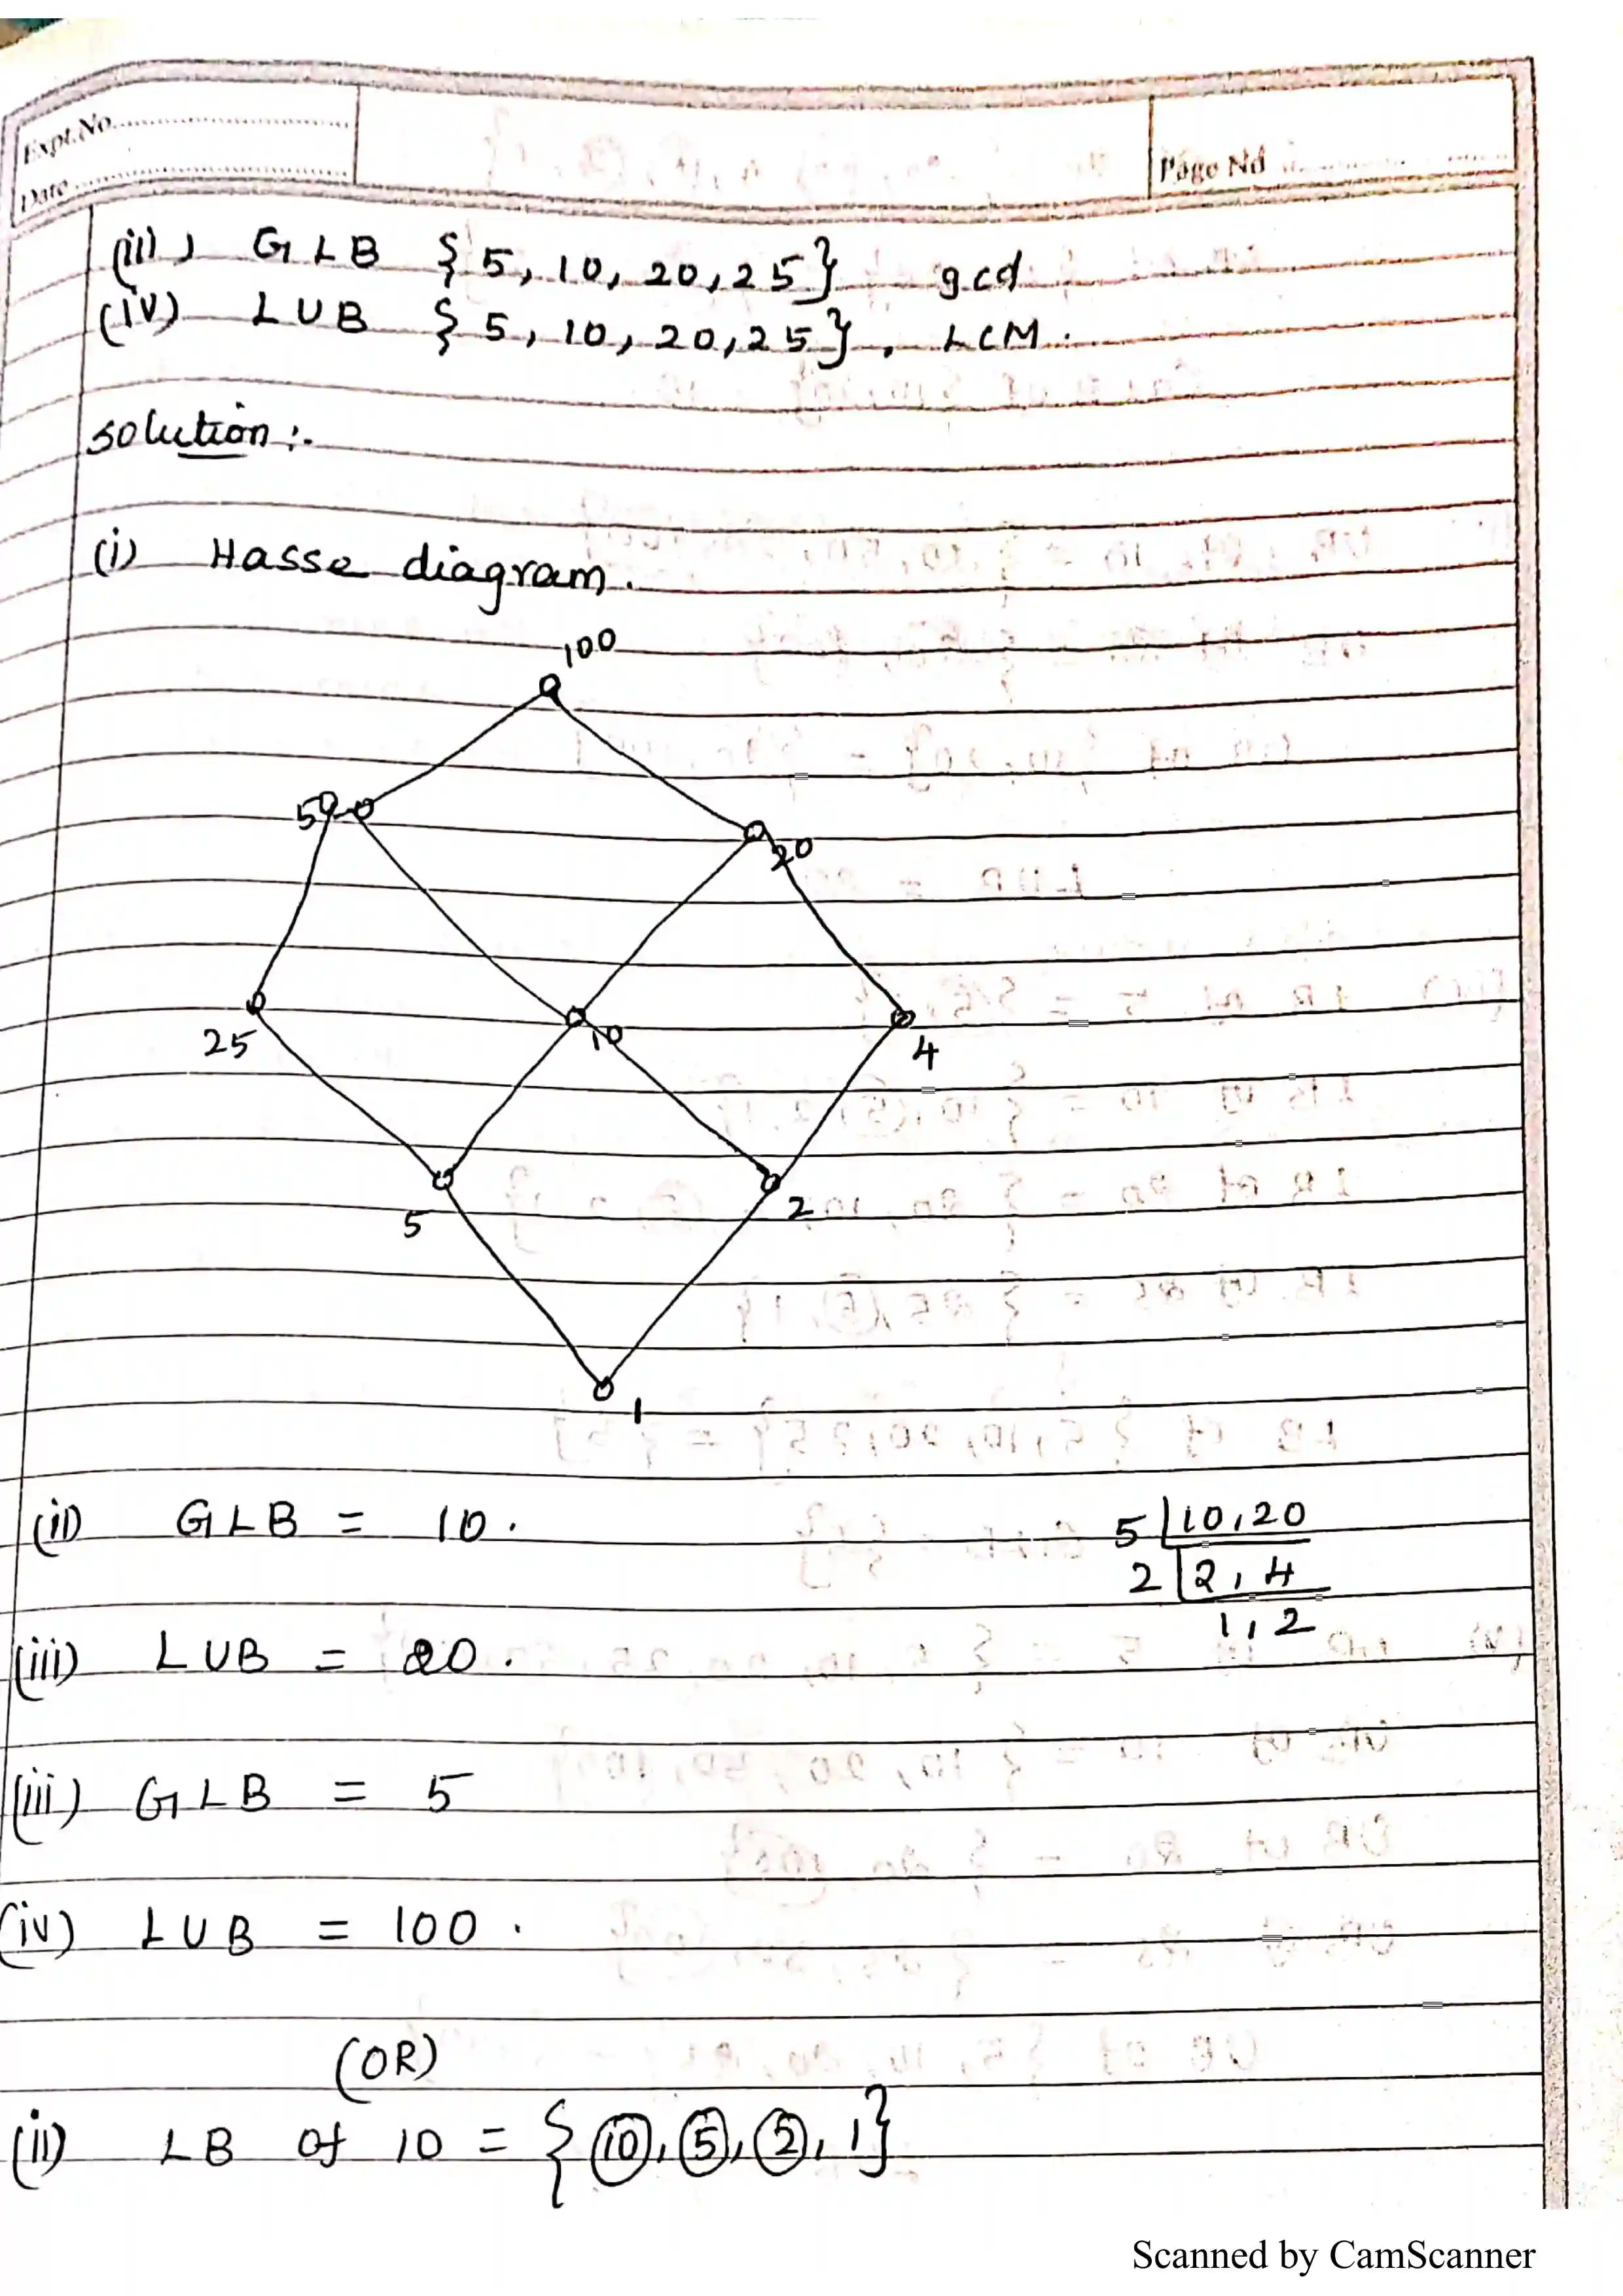 Expt.No.
Date
Page No
(iii) GLB {5, 10, 20, 25} gcd
(iv) LUB {5, 10, 20, 25}. LCM.
Solution:-
(i) Hasse diagram.
100
50
20
25
10
4
5
2
1
(ii) GLB = 10.
5 | 10, 20
2 | 2, 4
1, 2
(iii) LUB = 20.
(iii) GLB = 5
(iv) LUB = 100.
(OR)
(ii) LB of 10 = {10, 5, 2, 1}
Scanned by CamScanner